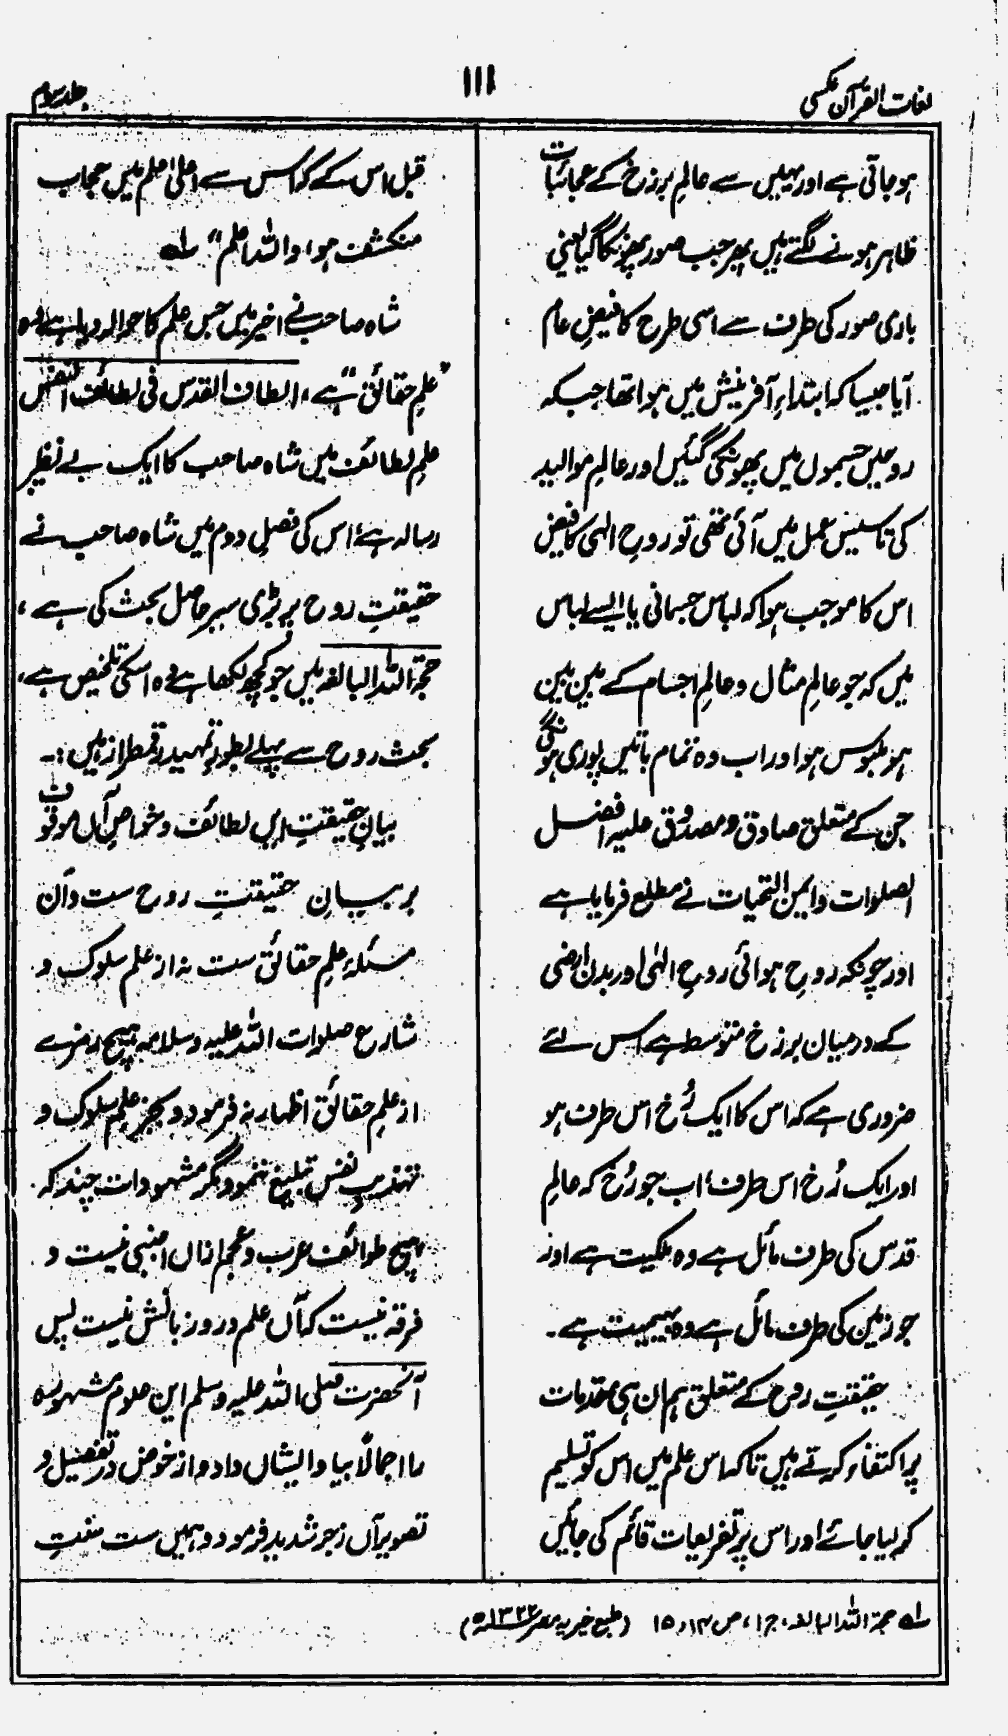 لغات القرآن عکسی
۱۱۱
جلد سوم
ہو جاتی ہے اور یہیں سے عالمِ برزخ کے عجائبات
ظاہر ہونے لگتے ہیں پھر جب صور پھونکا گیا یعنی
باری صور کی طرف سے اسی طرح کا فیضِ عام
آیا جیسا کہ ابتداءِ آفرینش میں ہوا تھا جبکہ
روحیں جسموں میں پھونکی گئیں اور عالمِ موالید
کی تاسیس عمل میں آئی تھی تو روحِ الٰہی کا فیض
اس کا موجب ہوا کہ لباس جسمانی یا ایسے لباس
میں کہ جو عالمِ مثال و عالمِ اجسام کے بین بین
ہو ملبوس ہو اور اب وہ تمام باتیں پوری ہونگی
جن کے متعلق صادق و مصدوق علیہ افضل
الصلوات و ایمن التحیات نے مطلع فرمایا ہے
اور چونکہ روحِ ہوائی روحِ الٰہی اور بدن ارضی
کے درمیان برزخ متوسط ہے اس لئے
ضروری ہے کہ اس کا ایک رُخ اس طرف ہو
اور ایک رُخ اس طرف، اب جو رُخ کہ عالمِ
قدس کی طرف مائل ہے وہ ملکیت ہے اور
جو زمین کی طرف مائل ہے وہ بہیمیت ہے۔
حقیقتِ روح کے متعلق ہم ان ہی مقدمات
پر اکتفاء کرتے ہیں تاکہ اس علم میں اس کو تسلیم
کر لیا جائے اور اس پر تفریعات قائم کی جائیں
قبل اس کے کہ اس سے اعلیٰ علم میں حجاب
منکشف ہو، واللہ اعلم“ لہ
شاہ صاحب نے اخیر میں جس علم کا حوالہ دیا ہے وہ
”علمِ حقائق“ ہے، الطاف القدس فی لطائف النفس
علمِ لطائف میں شاہ صاحب کا ایک بے نظیر
رسالہ ہے، اس کی فصلِ دوم میں شاہ صاحب نے
حقیقتِ روح پر بڑی سیر حاصل بحث کی ہے،
حجۃ اللہ البالغہ میں جو کچھ لکھا ہے وہ اسکی تلخیص ہے،
بحث روح سے پہلے بطورِ تمہید رقمطراز ہیں :۔
بیانِ حقیقتِ این لطائف و خواصِ آں موقوف
بر بیانِ حقیقتِ روح ست و آن
مسئلہ علمِ حقائق ست نہ از علم سلوک و
شارع صلوات اللہ علیہ و سلامہ ہیچ رمزے
از علمِ حقائق اظہار نہ فرمود و بجز علمِ سلوک و
تہذیبِ نفس تبلیغ ننمود مگر مشہودات چند کہ
ہیچ طوائف عرب و عجم ازاں اجنبی نیست و
فرقہ نیست کہ آں علم در روز بانش نیست پس
آنحضرت صلی اللہ علیہ وسلم این علوم مشہورہ
را اجمالًا بیاد ایشاں داد و از خوض در تفصیل و
تصویر آں زجر شدید فرمود و ہمیں ست سنتِ
لہ حجۃ اللہ البالغہ، ج ۱، ص ۱۴ و ۱۵ (طبع خیریہ مصر ۱۳۲۲ھ)